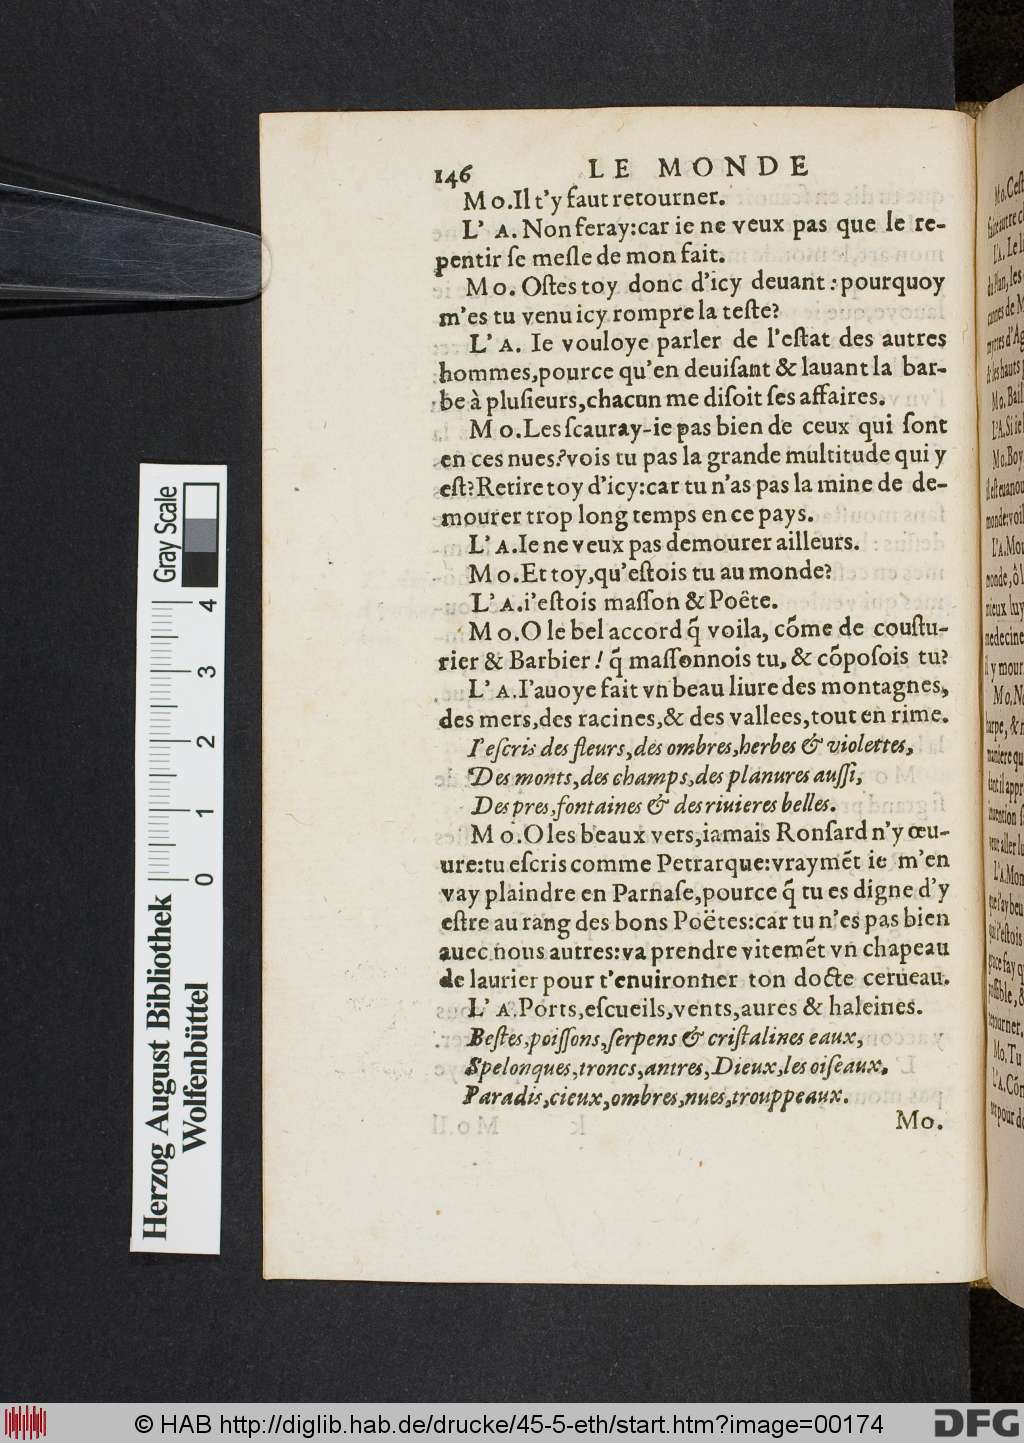 146 LE MONDE
Mo. Il t'y faut retourner.
L'A. Non feray: car ie ne veux pas que le re-
pentir ſe meſle de mon fait.
Mo. Oſtes toy donc d'icy deuant: pourquoy
m'es tu venu icy rompre la teſte?
L'A. Ie vouloye parler de l'eſtat des autres
hommes, pource qu'en deuiſant & lauant la bar-
be à pluſieurs, chacun me diſoit ſes affaires.
Mo. Les ſcauray-ie pas bien de ceux qui ſont
en ces nues? vois tu pas la grande multitude qui y
eſt? Retire toy d'icy: car tu n'as pas la mine de de-
mourer trop long temps en ce pays.
L'A. Ie ne veux pas demourer ailleurs.
Mo. Et toy, qu'eſtois tu au monde?
L'A. i'eſtois maſſon & Poëte.
Mo. O le bel accord q̃ voila, cõme de couſtu-
rier & Barbier! q̃ maſſonnois tu, & cõpoſois tu?
L'A. I'auoye fait vn beau liure des montagnes,
des mers, des racines, & des vallees, tout en rime.
I'eſcris des fleurs, des ombres, herbes & violettes,
Des monts, des champs, des planures auſſi,
Des pres, fontaines & des riuieres belles.
Mo. O les beaux vers, iamais Ronſard n'y œu-
ure: tu eſcris comme Petrarque: vraymẽt ie m'en
vay plaindre en Parnaſe, pource q̃ tu es digne d'y
eſtre au rang des bons Poëtes: car tu n'es pas bien
auec nous autres: va prendre vitemẽt vn chapeau
de laurier pour t'enuironner ton docte cerueau.
L'A. Ports, eſcueils, vents, aures & haleines.
Beſtes, poiſſons, ſerpens & criſtalines eaux,
Spelonques, troncs, antres, Dieux, les oiſeaux,
Paradis, cieux, ombres, nues, trouppeaux.
Mo.
Gray Scale
0 1 2 3 4
Herzog August Bibliothek
Wolfenbüttel
© HAB http://diglib.hab.de/drucke/45-5-eth/start.htm?image=00174
DFG